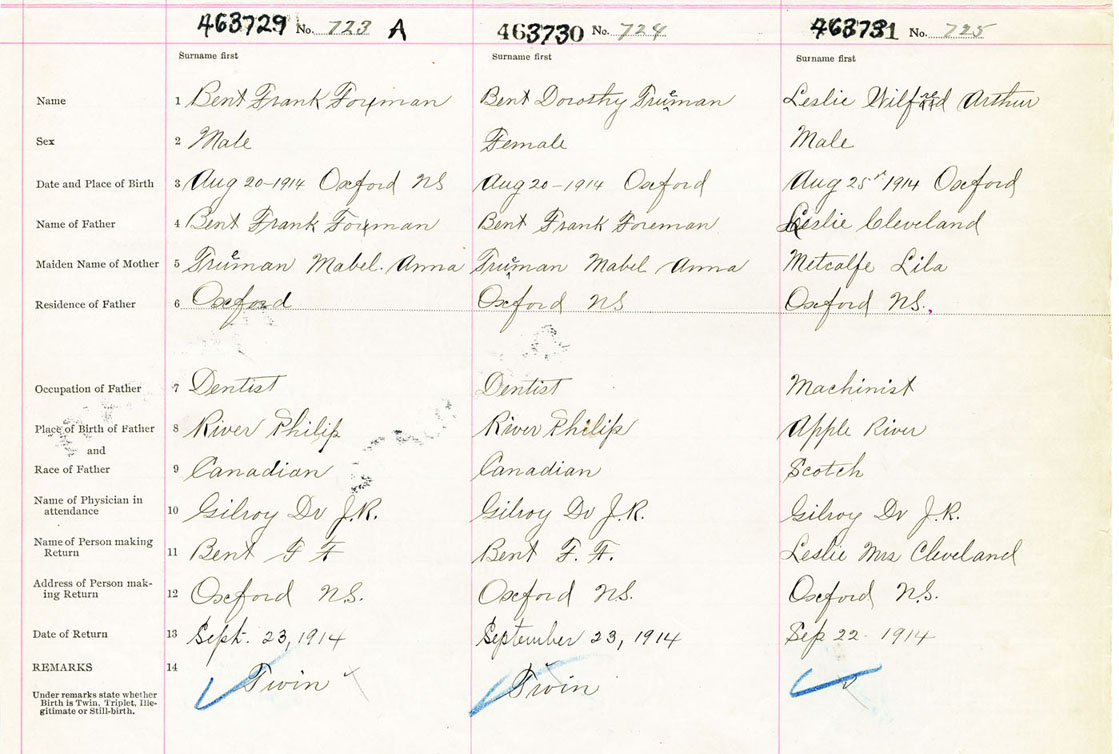 463729 No. 723 A 463730 No. 724 463731 No. 725
Surname first Surname first Surname first
Name 1 Bent Frank Foreman Bent Dorothy Trueman Leslie Wilfred Arthur
Sex 2 Male Female Male
Date and Place of Birth 3 Aug 20-1914 Oxford NS Aug 20-1914 Oxford Aug 25" 1914 Oxford
Name of Father 4 Bent Frank Foreman Bent Frank Foreman Leslie Cleveland
Maiden Name of Mother 5 Trueman Mabel. Anna Trueman Mabel Anna Metcalfe Lila
Residence of Father 6 Oxford Oxford NS Oxford NS.
Occupation of Father 7 Dentist Dentist Machinist
Place of Birth of Father 8 River Philip River Philip Apple River
and
Race of Father 9 Canadian Canadian Scotch
Name of Physician in
attendance 10 Gilroy Dr J.R. Gilroy Dr J.R. Gilroy Dr J.R.
Name of Person making
Return 11 Bent F F Bent F. F. Leslie Mrs Cleveland
Address of Person mak-
ing Return 12 Oxford NS. Oxford NS. Oxford N.S.
Date of Return 13 Sept. 23, 1914 September 23, 1914 Sep 22. 1914
REMARKS 14 Twin Twin
Under remarks state whether
Birth is Twin, Triplet, Ille-
gitimate or Still-birth.